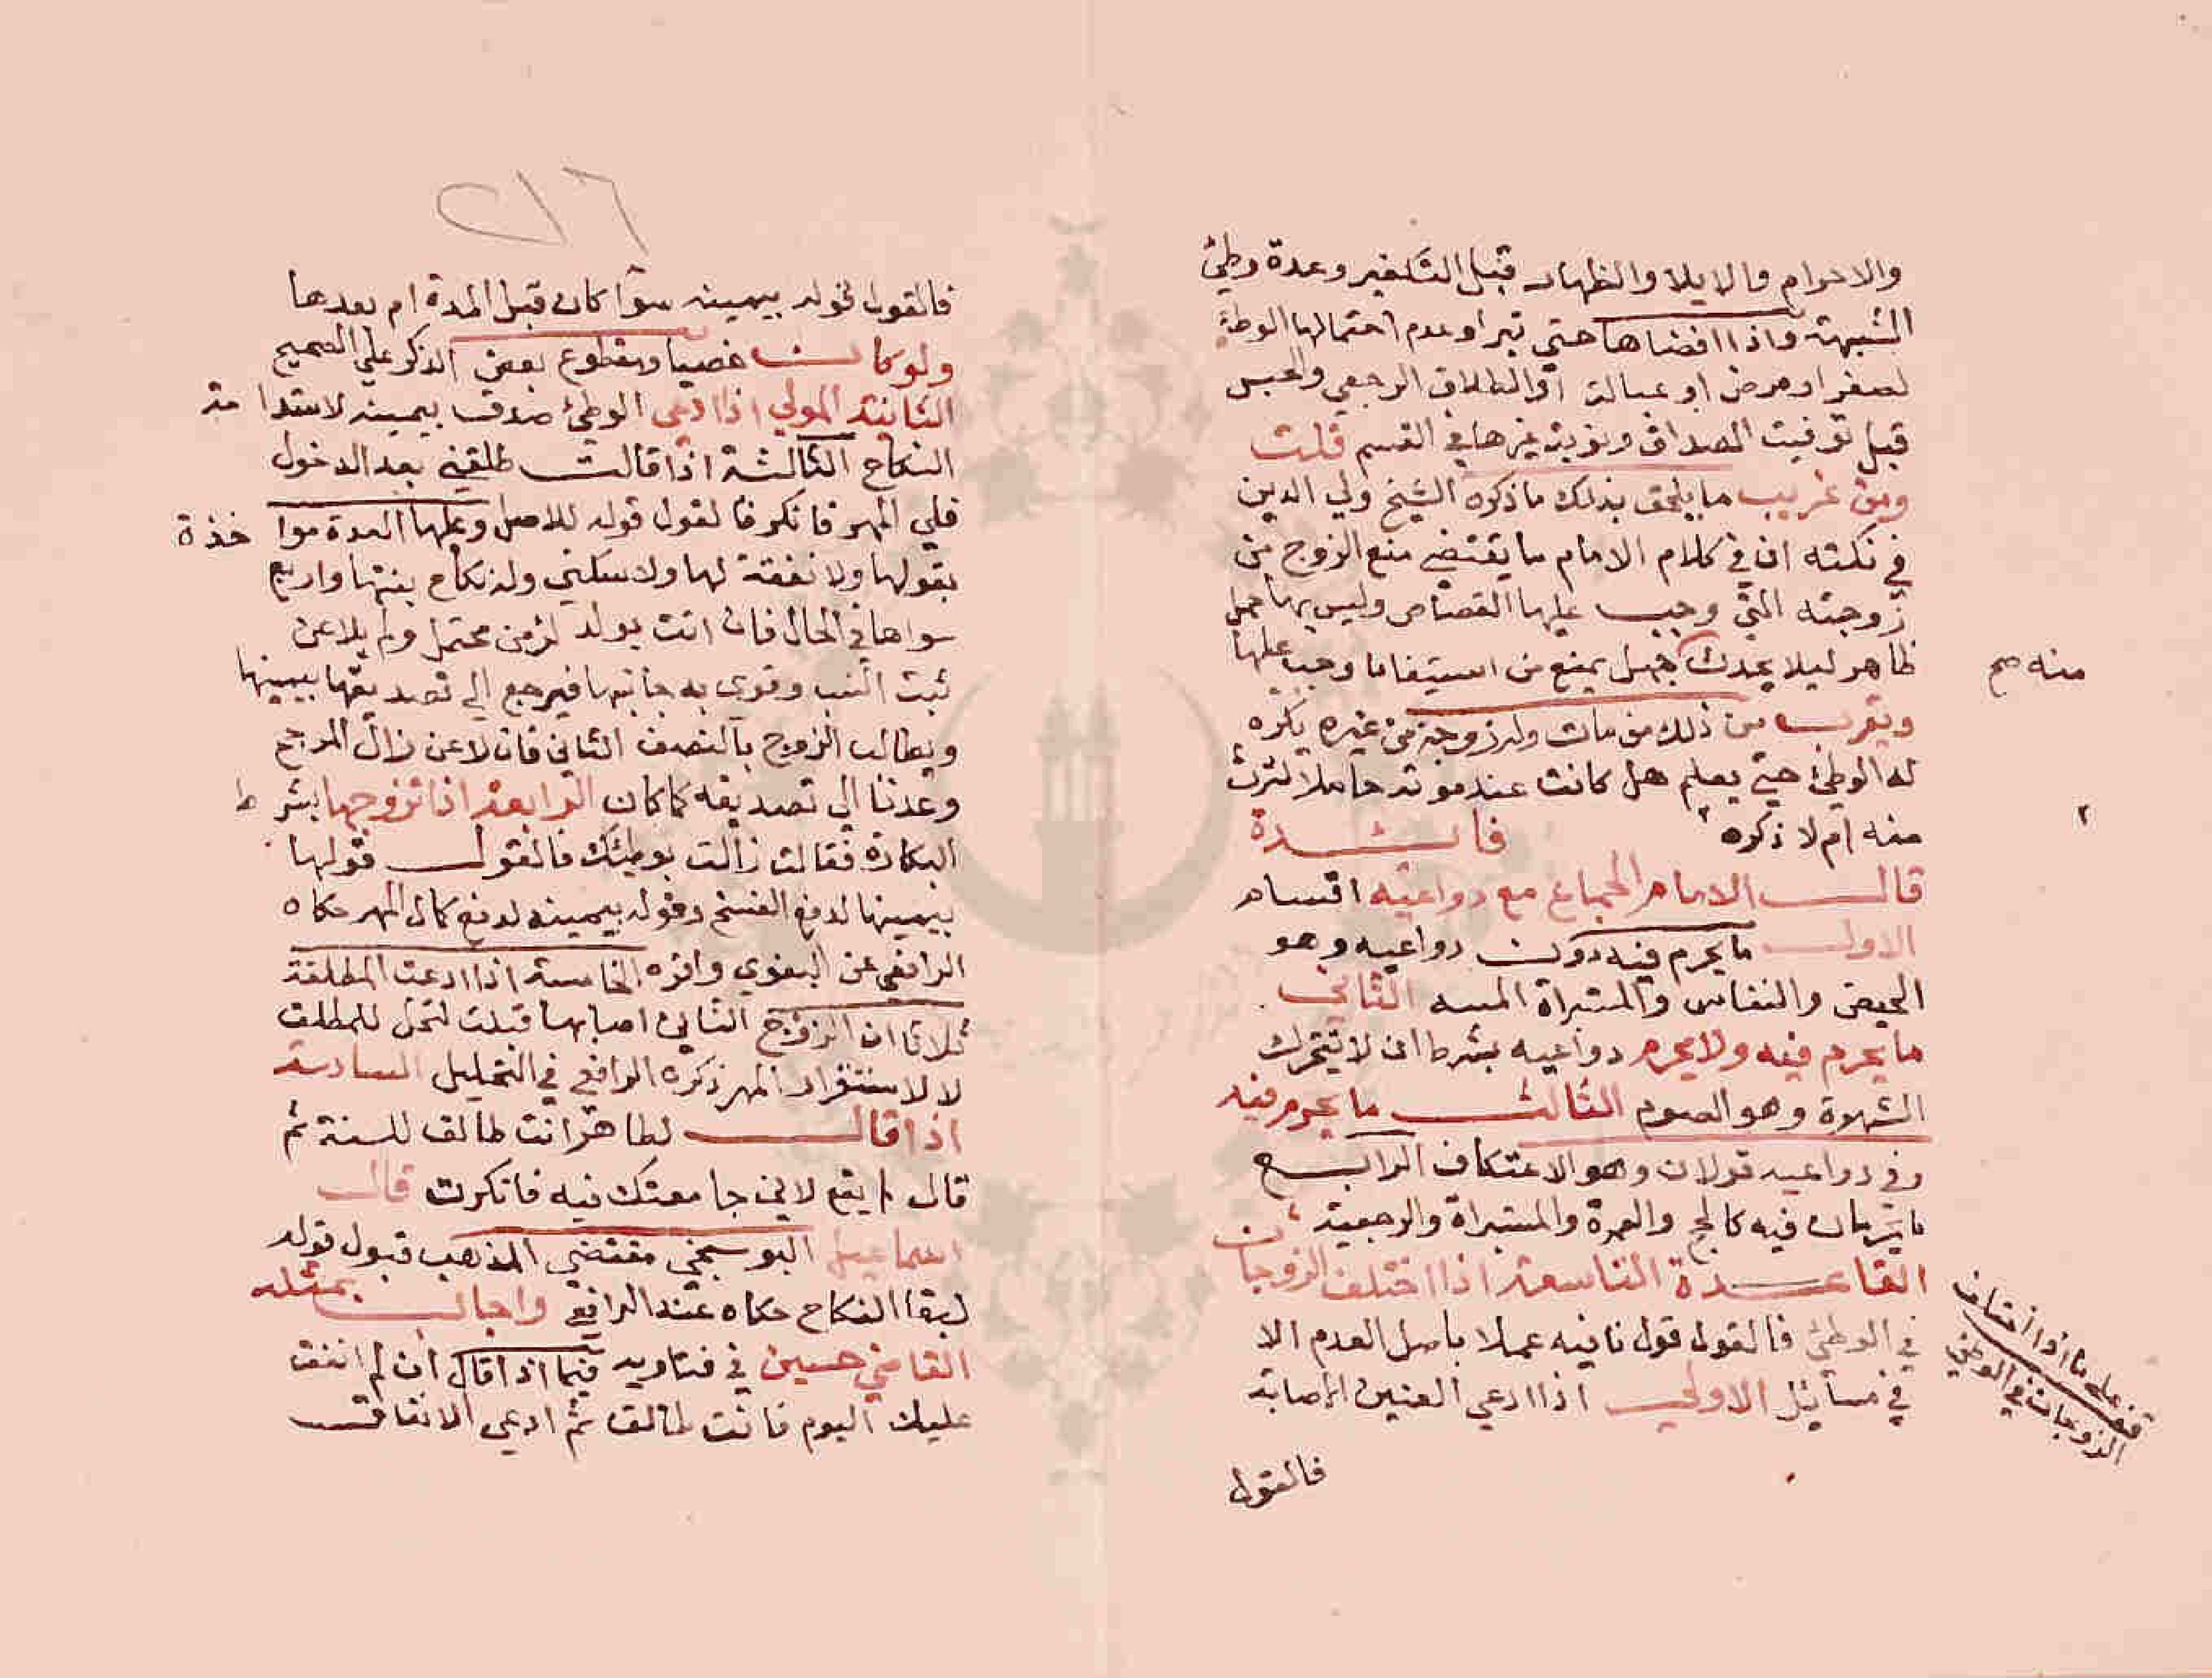 والاحرام فالايلا والظهار قبل التكفير وعدة وطئ
الشبهة واذا افضاها حتى تبرا وعدم احتمالها الوطئ
لصغر او مرض او عبالة او الطلاق الرجعي والحبس
قبل توفيت الصداق ونوبة غيرها في القسم قلت
ومن غريب ما يلحق بذلك ما ذكره الشيخ ولي الدين
في نكته ان في كلام الامام ما يقتضي منع الزوج من
زوجته التي وجب عليها القصاص وليس بها حمل
ظاهر ليلا يحدث حمل يمنع من استيفا ما وجب عليها
منه صح
ويقرب من ذلك من مات وله زوجة من غيره يكره
له الوطئ حتى يعلم هل كانت عند موته حاملا لترث
منه ام لا ذكره
٢
فائدة
قال الامام الجماع مع دواعيه اقسام
الاول ما يحرم فيه دون دواعيه وهو
الحيض والنفاس والمستبراة المسبه الثاني
ما يحرم فيه ولا يحرم دواعيه بشرط ان لا تتحرك
الشهوة وهو الصوم الثالث ما يحرم فيه
وفي دواعيه قولان وهو الاعتكاف الرابع
ما يحرمان فيه كالحج والعمرة والمستبراة والرجعية
القاعدة التاسعة اذا اختلف الزوجان
قف على ما اذا اختلف
الزوجان في الوطئ
في الوطئ فالقول قول نافيه عملا باصل العدم الا
في مسائل الاولى اذا ادعى العنين الاصابة
فالقول
٢١٦
فالقول قوله بيمينه سوا كان قبل المدة ام بعدها
ولو كان خصيا ومقطوع بعض الذكر على الصحيح
الثانية المولي اذا ادعى الوطئ صدق بيمينه لاستدامة
النكاح الثالثة اذا قالت طلقني بعد الدخول
فلي المهر فانكر فالقول قوله للاصل وعليها العدة مواخذة
بقولها ولا نفقة لها ولا سكنى وله نكاح بنتها واربع
سواها في الحال فان اتت بولد لزمن محتمل ولم يلاعن
ثبت النسب وقوي به جانبها فيرجع الى تصديقها بيمينها
ويطالب الزوج بالنصف الثاني فان لاعن زال المرجح
وعدنا الى تصديقه كما كان الرابعة اذا تزوجها بشرط
البكارة فقالت زالت بوطئك فالقول قولها
بيمينها لدفع الفسخ وقوله بيمينه لدفع كمال المهر حكاه
الرافعي عن البغوي واقره الخامسة اذا ادعت المطلقة
ثلاثا ان الزوج الثاني اصابها قبلت لتحل للمطلق
لا لاستقرار المهر ذكره الرافعي في التحليل السادسة
اذا قال لطاهر انت طالق للسنة ثم
قال لم يقع لاني جامعتك فيه فانكرت قال
اسماعيل البوسنجي مقتضى المذهب قبول قوله
لبقا النكاح حكاه عنه الرافعي واجاب بمثله
القاضي حسين في فتاويه فيما اذا قال ان لم انفق
عليك اليوم فانت طالق ثم ادعى الانفاق